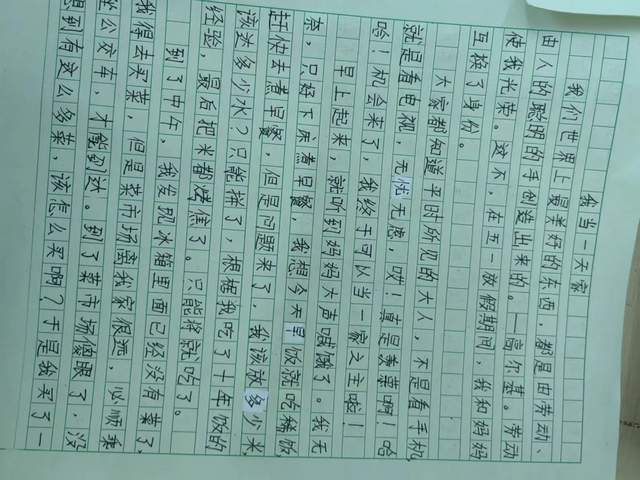 我当一天家
我们世界上最美好的东西，都是由劳动、
由人的聪明的手创造出来的。——高尔基。劳动
使我光荣。这不，在五一放假期间，我和妈妈
互换了身份。
大家都知道平时所见的大人，不是看手机
就是看电视，无忧无虑，哎！真是羡慕啊！哈
哈！机会来了，我终于可以当一家之主啦！
早上起来，就听到妈妈大声喊饿了。我无
奈，只好下床煮早餐，我想今天早饭就吃稀饭
赶快去煮早餐，但是问题来了，我该放多少米，
该达多少水？只能拼了，根据我吃了十年饭的
经验，最后把米都烤焦了。只能将就吃了。
到了中午，我发现冰箱里面已经没有菜了，
我得去买菜，但是菜市场离我家很远，必顺乘
坐公交车，才能到达。到了菜市场傻眼了，没
想到有这么多菜，该怎么买啊？于是我买了一